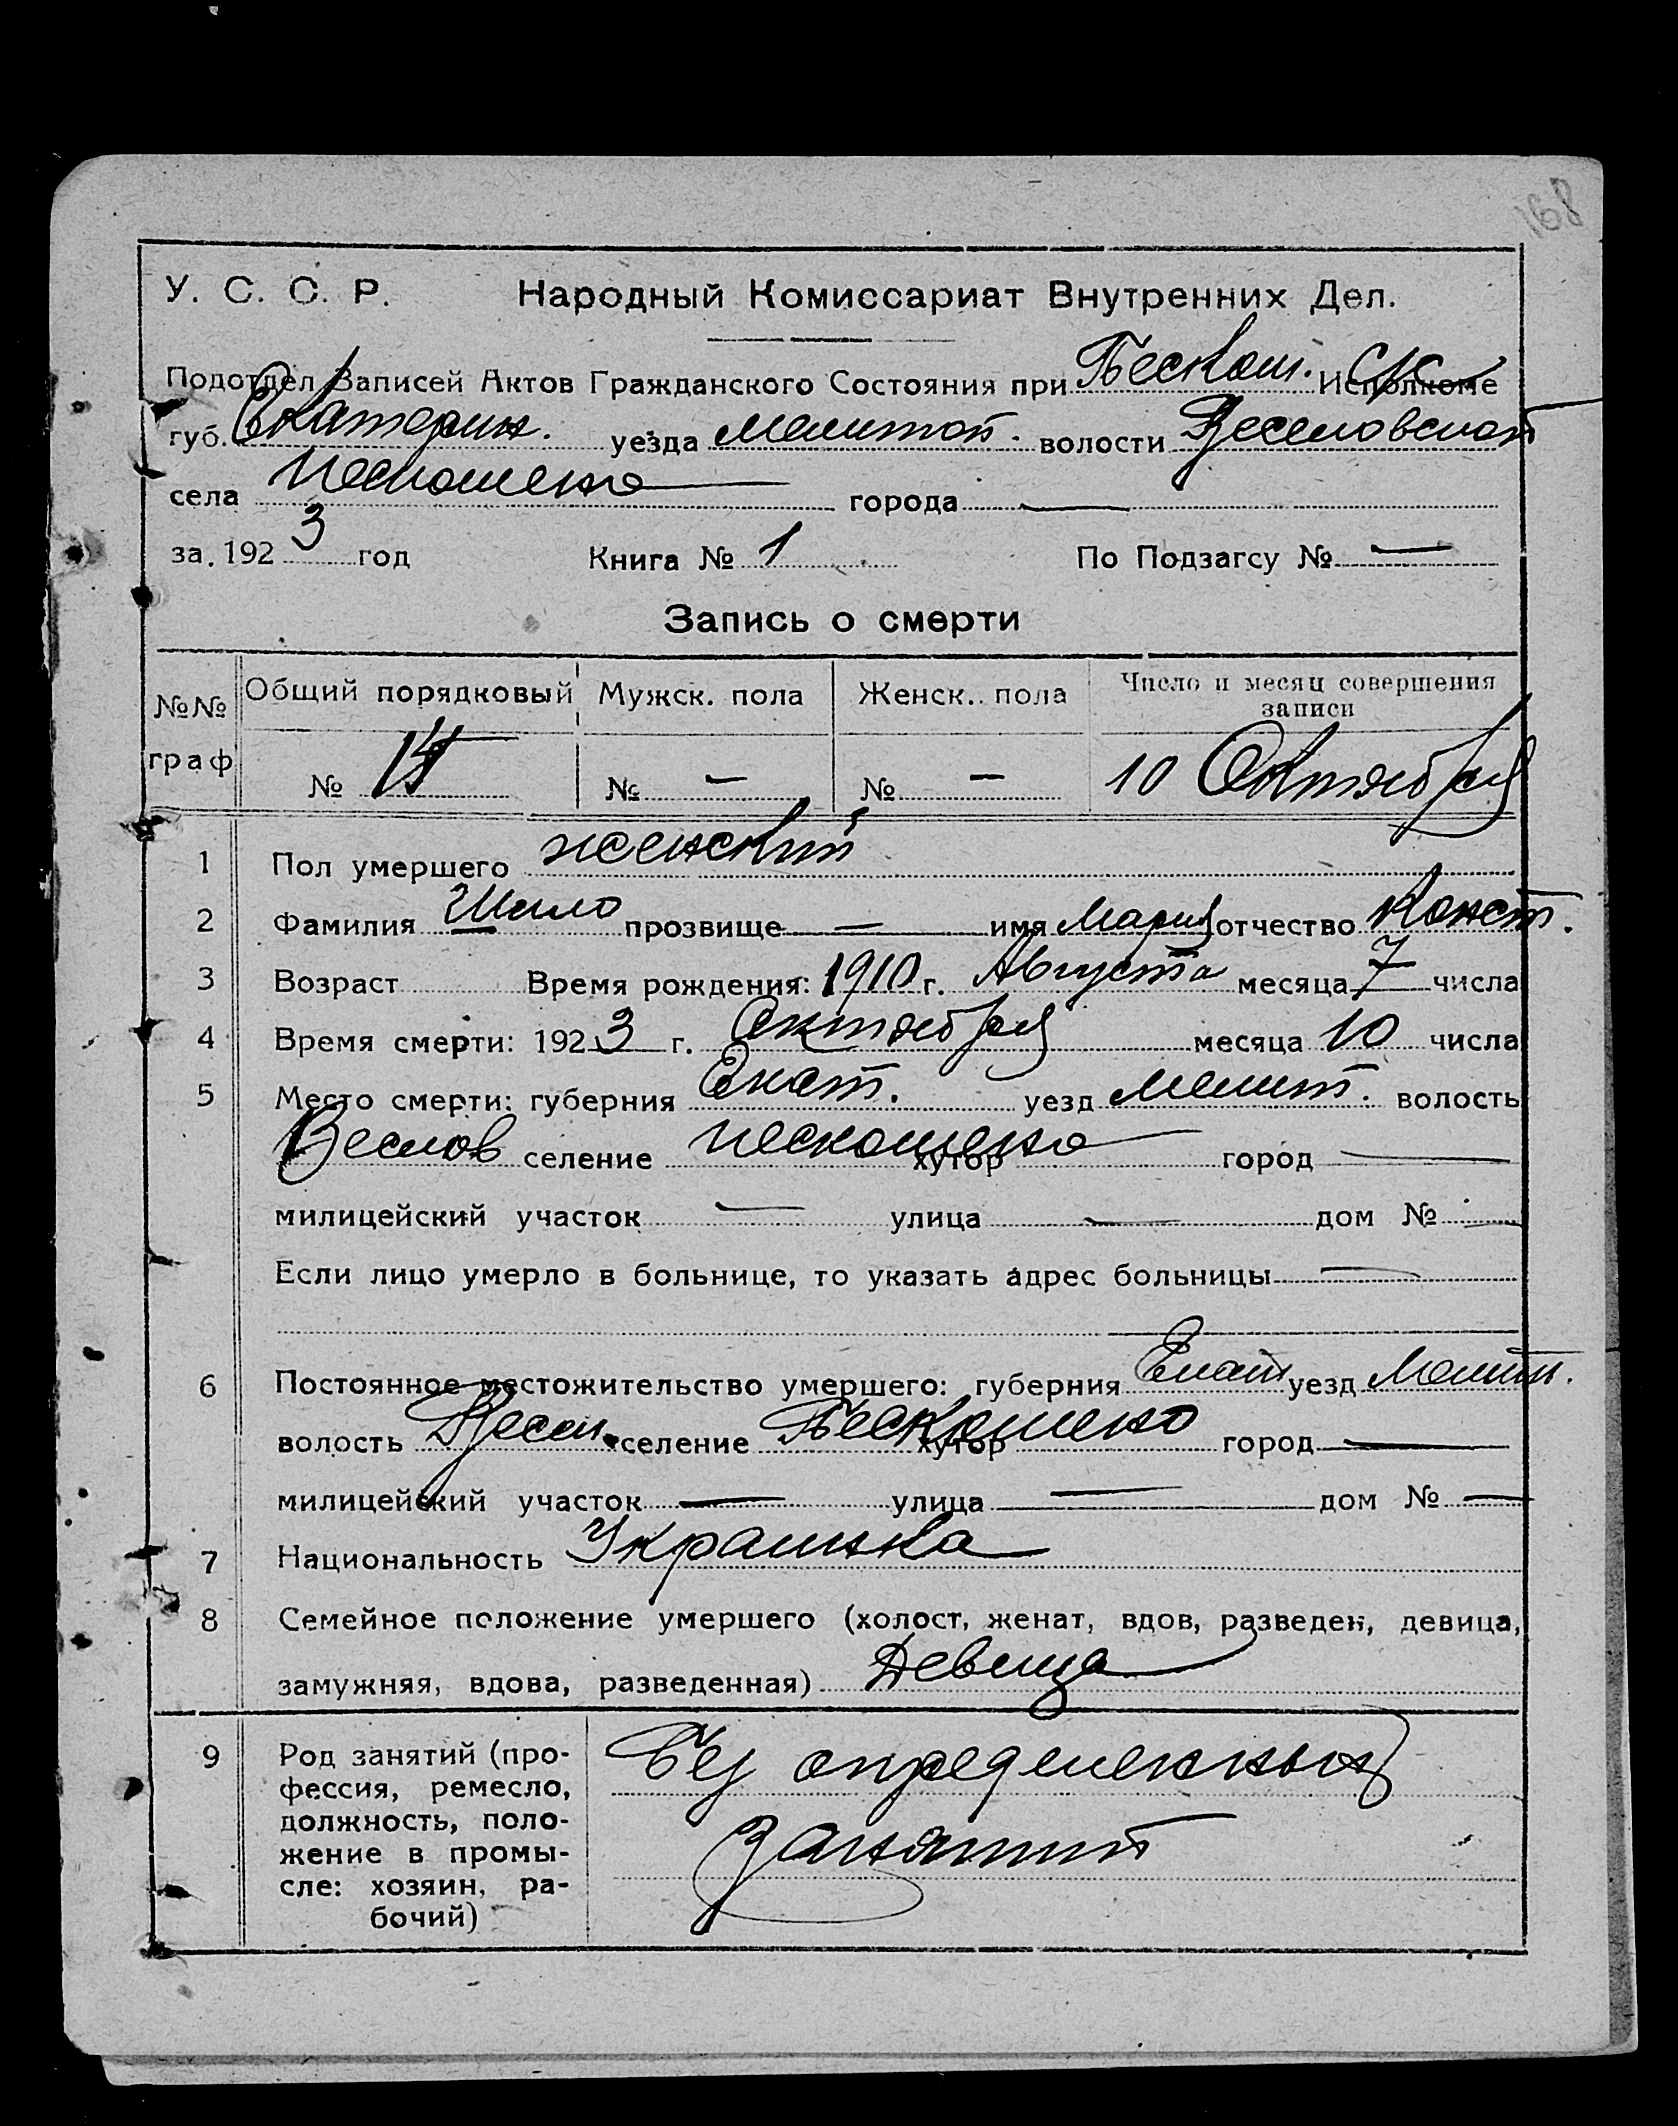 168
У. С. С. Р. Народный Комиссариат Внутренних Дел.
Подотдел Записей Актов Гражданского Состояния при Бескош. С/с Исполкоме
губ. Екатерин. уезда Мелитоп. волости Веселовской
села Пескошено — города —
за 1923 год Книга № 1 По Подзагсу № —
Запись о смерти
№№ граф Общий порядковый Мужск. пола Женск. пола Число и месяц совершения записи
№ № — № — 10 Октября
1 Пол умершего женский
2 Фамилия Шило прозвище — имя Мария отчество Конст.
3 Возраст Время рождения: 1910 г. Августа месяца 7 числа
4 Время смерти: 1923 г. Октября месяца 10 числа
5 Место смерти: губерния Екат. уезд Мелит. волость
Веслов селение Пескошено хутор город —
милицейский участок — улица — дом № —
Если лицо умерло в больнице, то указать адрес больницы —
6 Постоянное местожительство умершего: губерния Екат уезд Мелит.
волость Весел. селение Бескошено хутор город —
милицейский участок — улица — дом № —
7 Национальность Украинка
8 Семейное положение умершего (холост, женат, вдов, разведен, девица,
замужняя, вдова, разведенная) Девица
9 Род занятий (про-
фессия, ремесло,
должность, поло-
жение в промы-
сле: хозяин, ра-
бочий)
Без определенных
занятий